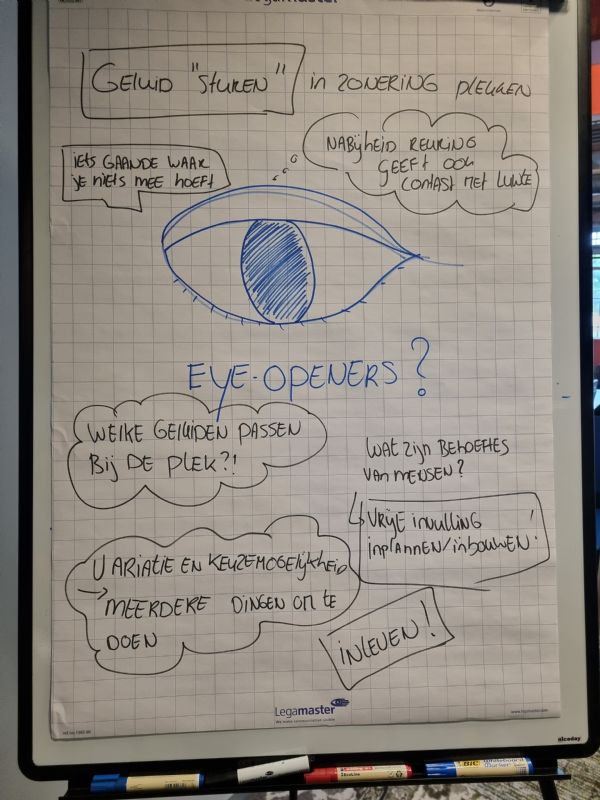 Legamaster
GELUID "STUREN" in ZONERING PLEKKEN
iets GAANDE WAAR
je niets mee hoeft
NABijHEID REURING
GEEFT OOK
CONTAST MET LUWTE
EYE-OPENERS?
WELKE GELUIDEN PASSEN
Bij DE PLEK?!
WAT zijn BEHOEFTES
VAN MENSEN?
VRIJE invulling
inplannen/inbouwen!
VARIATIE EN KEUZEMOGELijkHEID
→ MEERDERE DINGEN OM TE
DOEN
INLEVEN!
Legamaster
We make communication visible
www.legamaster.com
niceday
BIC Whiteboard
Marker